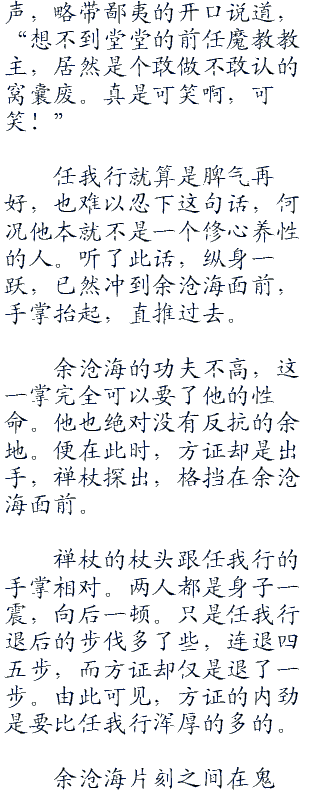 声，略带鄙夷的开口说道，
“想不到堂堂的前任魔教教
主，居然是个敢做不敢认的
窝囊废。真是可笑啊，可
笑！”
任我行就算是脾气再
好，也难以忍下这句话，何
况他本就不是一个修心养性
的人。听了此话，纵身一
跃，已然冲到余沧海面前，
手掌抬起，直推过去。
余沧海的功夫不高，这
一掌完全可以要了他的性
命。他也绝对没有反抗的余
地。便在此时，方证却是出
手，禅杖探出，格挡在余沧
海面前。
禅杖的杖头跟任我行的
手掌相对。两人都是身子一
震，向后一顿。只是任我行
退后的步伐多了些，连退四
五步，而方证却仅是退了一
步。由此可见，方证的内劲
是要比任我行浑厚的多的。
余沧海片刻之间在鬼